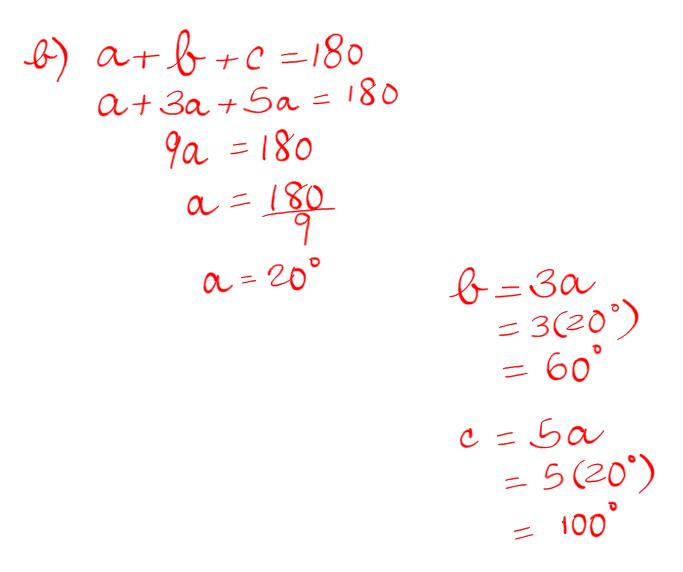 b) a + b + c = 180
a + 3a + 5a = 180
9a = 180
a = 180/9
a = 20°
b = 3a
= 3(20°)
= 60°
c = 5a
= 5(20°)
= 100°